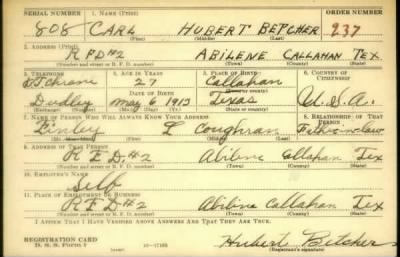 SERIAL NUMBER 1. NAME (Print) ORDER NUMBER
808 CARL HUBERT BETCHER 237
(First) (Middle) (Last)
2. ADDRESS (Print)
R F D #2 ABILENE CALLAHAN TEX
(Number and street or R. F. D. number) (Town) (County) (State)
3. TELEPHONE 4. AGE IN YEARS 5. PLACE OF BIRTH 6. COUNTRY OF CITIZENSHIP
27 Callahan
DATE OF BIRTH
Dudley May 6 1913 Texas U.S.A.
7. NAME OF PERSON WHO WILL ALWAYS KNOW YOUR ADDRESS 8. RELATIONSHIP OF THAT PERSON
Finley L Coughran Father in law
9. ADDRESS OF THAT PERSON
R F D. #2 Abilene Callahan Tex
(Number and street or R. F. D. number) (Town) (County) (State)
10. EMPLOYER'S NAME
Self
11. PLACE OF EMPLOYMENT OR BUSINESS
R F D #2 Abilene Callahan Tex
(Number and street or R. F. D. number) (Town) (County) (State)
I AFFIRM THAT I HAVE VERIFIED ABOVE ANSWERS AND THAT THEY ARE TRUE.
REGISTRATION CARD
D. S. S. FORM 1
Hubert Betcher
(Registrant's signature)